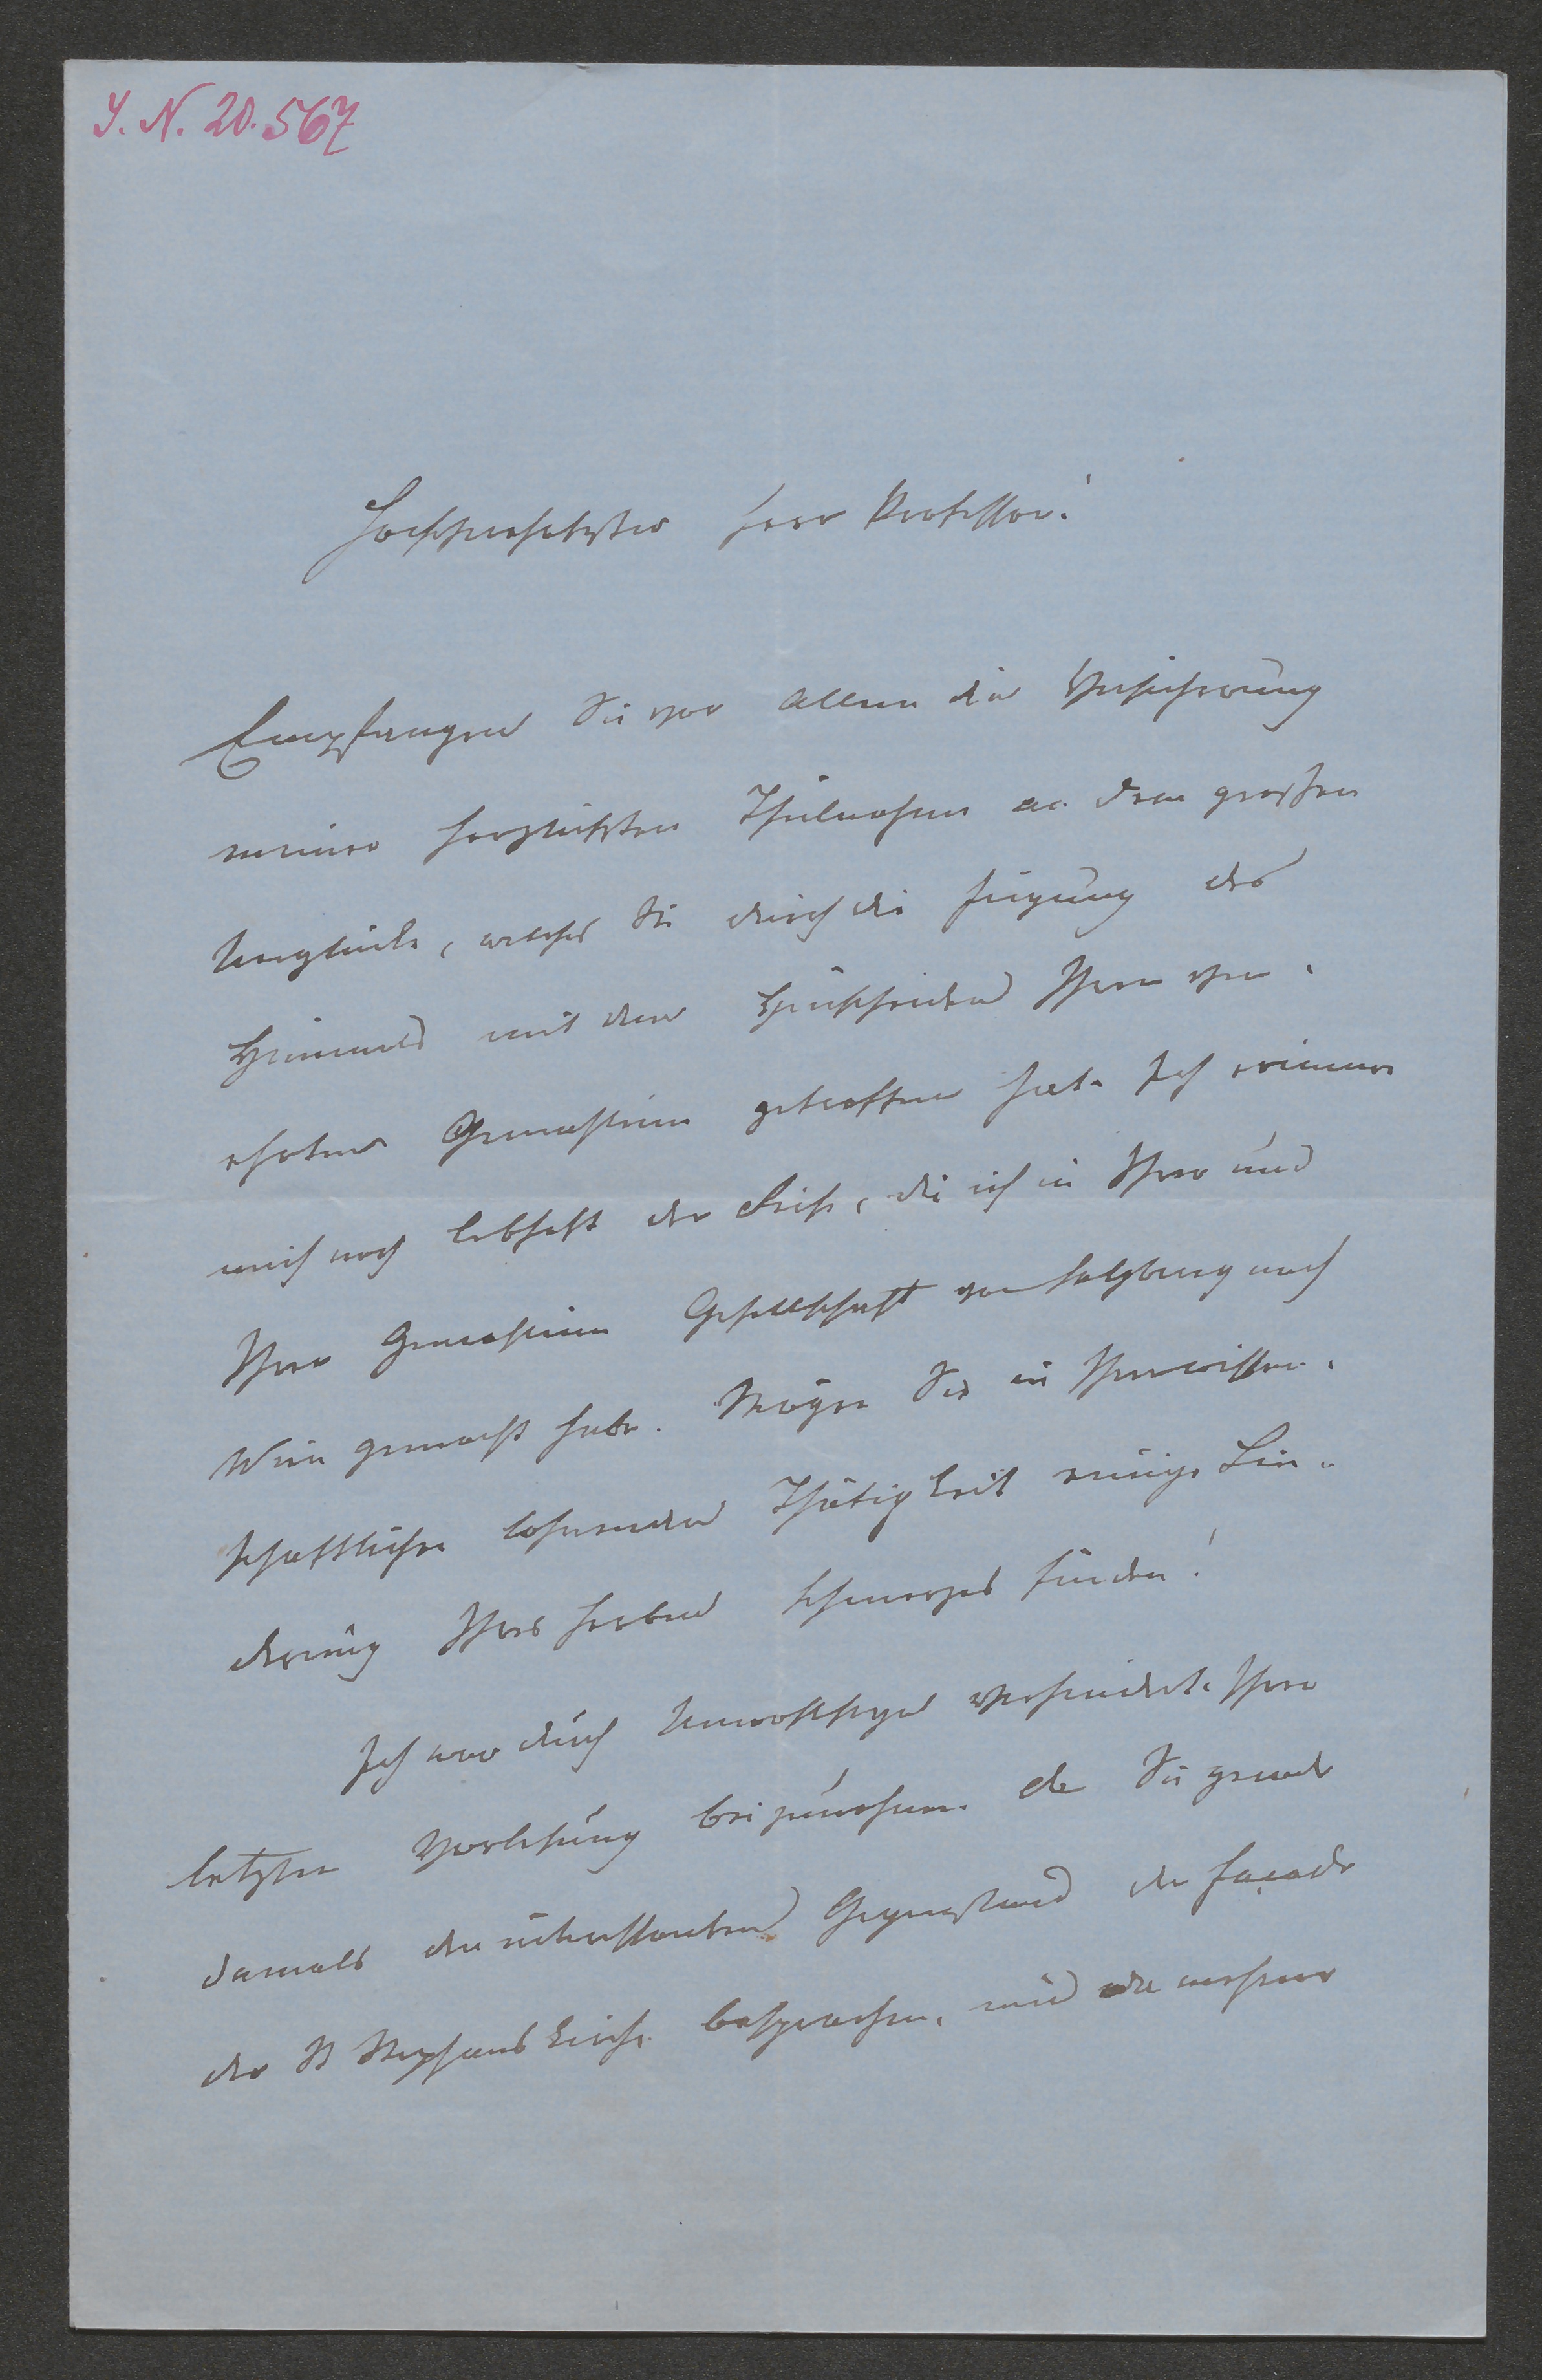 J. N. 20.567
Hochverehrtester Herr Professor!
Empfangen Sie vor Allem die Versicherung
meiner herzlichsten Theilnahme an dem großen
Unglücke, welches Sie durch die Fügung des
Himmels mit dem Hinscheiden Ihrer ver-
ehrten Gemahlinn getroffen hat. Ich erinnere
mich noch lebhaft der Reise, die ich in Ihrer und
Ihrer Gemahlinn Gesellschaft von Salzburg nach
Wien gemacht habe. Mögen Sie in Ihrer wissen-
schaftlichen lohnenden Thätigkeit einige Lin-
derung Ihres herben Schmerzes finden!
Ich war durch Unwohlseyn verhindert Ihrer
letzten Vorlesung beizuwohnen. da Sie gerade
damals den interessanten Gegenstand der Façade
der St Stephanskirche besprachen, und da mehrere